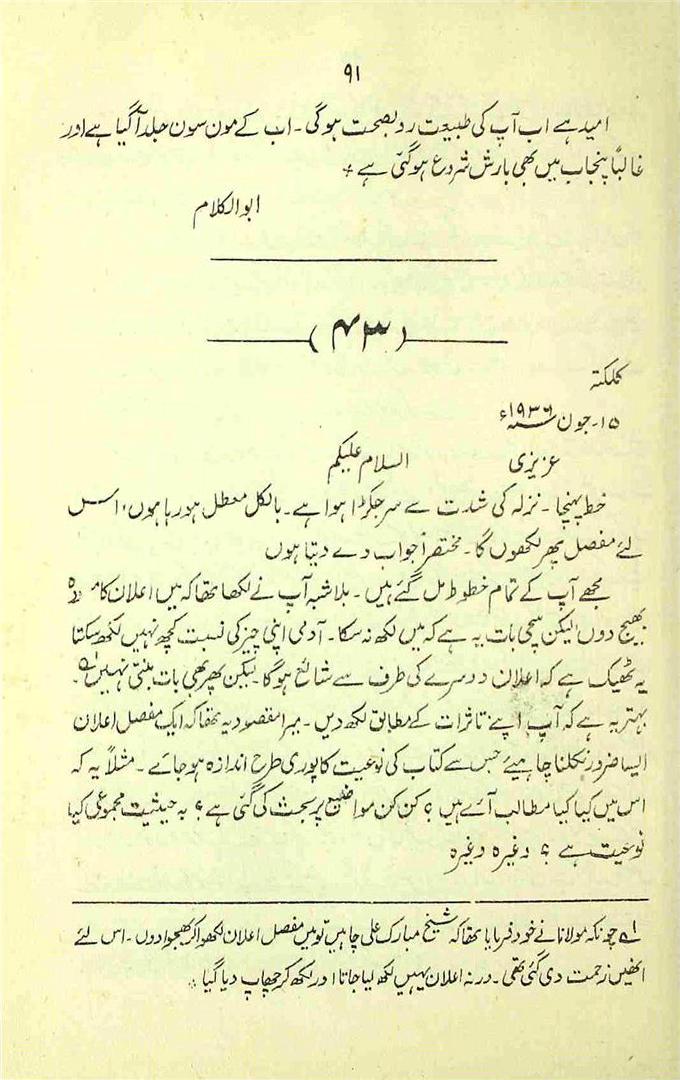 ۹۱
امید ہے اب آپ کی طبیعت روبصحت ہوگی۔ اب کے مون سون جلد آگیا ہے اور
غالباً پنجاب میں بھی بارش شروع ہوگئی ہے +
ابوالکلام
(۴۳)
کلکتہ
۱۵۔ جون ۱۹۳۶ء
عزیزی السلام علیکم
خط پہنچا۔ نزلہ کی شدت سے سر جکڑا ہوا ہے۔ بالکل معطل ہو رہا ہوں، اس
لئے مفصل پھر لکھوں گا۔ مختصراً جواب دے دیتا ہوں
مجھے آپ کے تمام خطوط مل گئے ہیں۔ بلاشبہ آپ نے لکھا تھا کہ میں اعلان کا مسودہ
بھیج دوں، لیکن سچی بات یہ ہے کہ میں لکھ نہ سکا۔ آدمی اپنی چیز کی نسبت کچھ نہیں لکھ سکتا
یہ ٹھیک ہے کہ اعلان دوسرے کی طرف سے شائع ہوگا۔ لیکن پھر بھی بات بنتی نہیں۔
بہتر یہ ہے کہ آپ اپنے تاثرات کے مطابق لکھ دیں۔ میرا مقصود یہ تھا کہ ایک مفصل اعلان
ایسا ضرور نکلنا چاہیئے جس سے کتاب کی نوعیت کا پوری طرح اندازہ ہو جائے۔ مثلاً یہ کہ
اس میں کیا کیا مطالب آئے ہیں؟ کن کن مواضیع پر بحث کی گئی ہے؟ بہ حیثیت مجموعی کیا
نوعیت ہے؟ وغیرہ وغیرہ
۱؎ چونکہ مولانا نے خود فرمایا تھا کہ شیخ مبارک علی چاہیں تو میں مفصل اعلان لکھوا کر بھجوا دوں۔ اس لئے
انھیں زحمت دی گئی تھی۔ ورنہ اعلان یہیں لکھ لیا جاتا اور لکھ کر چھاپ دیا گیا